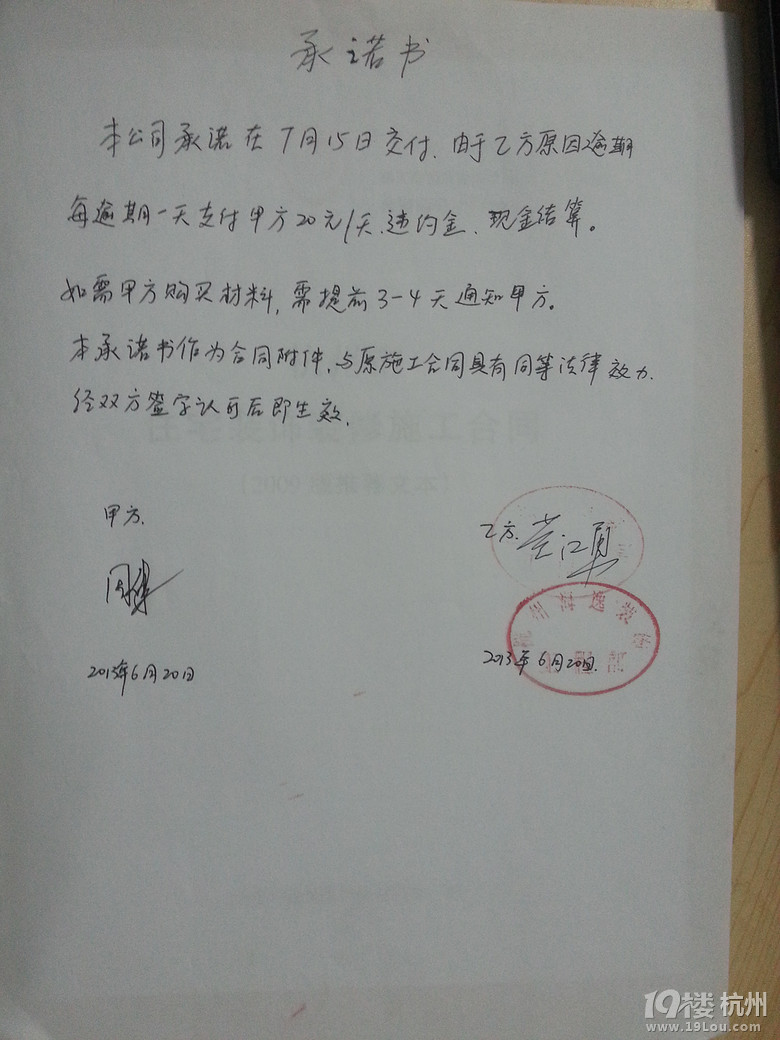 承诺书
本公司承诺在7月15日交付.由于乙方原因逾期
每逾期一天支付甲方20元/天.违约金.现金结算。
如需甲方购买材料,需提前3-4天通知甲方。
本承诺书作为合同附件.与原施工合同具有同等法律效力.
经双方签字认可后即生效.
甲方.
乙方.
2013年6月20日
2013年6月20日.
19楼杭州
www.19Lou.com